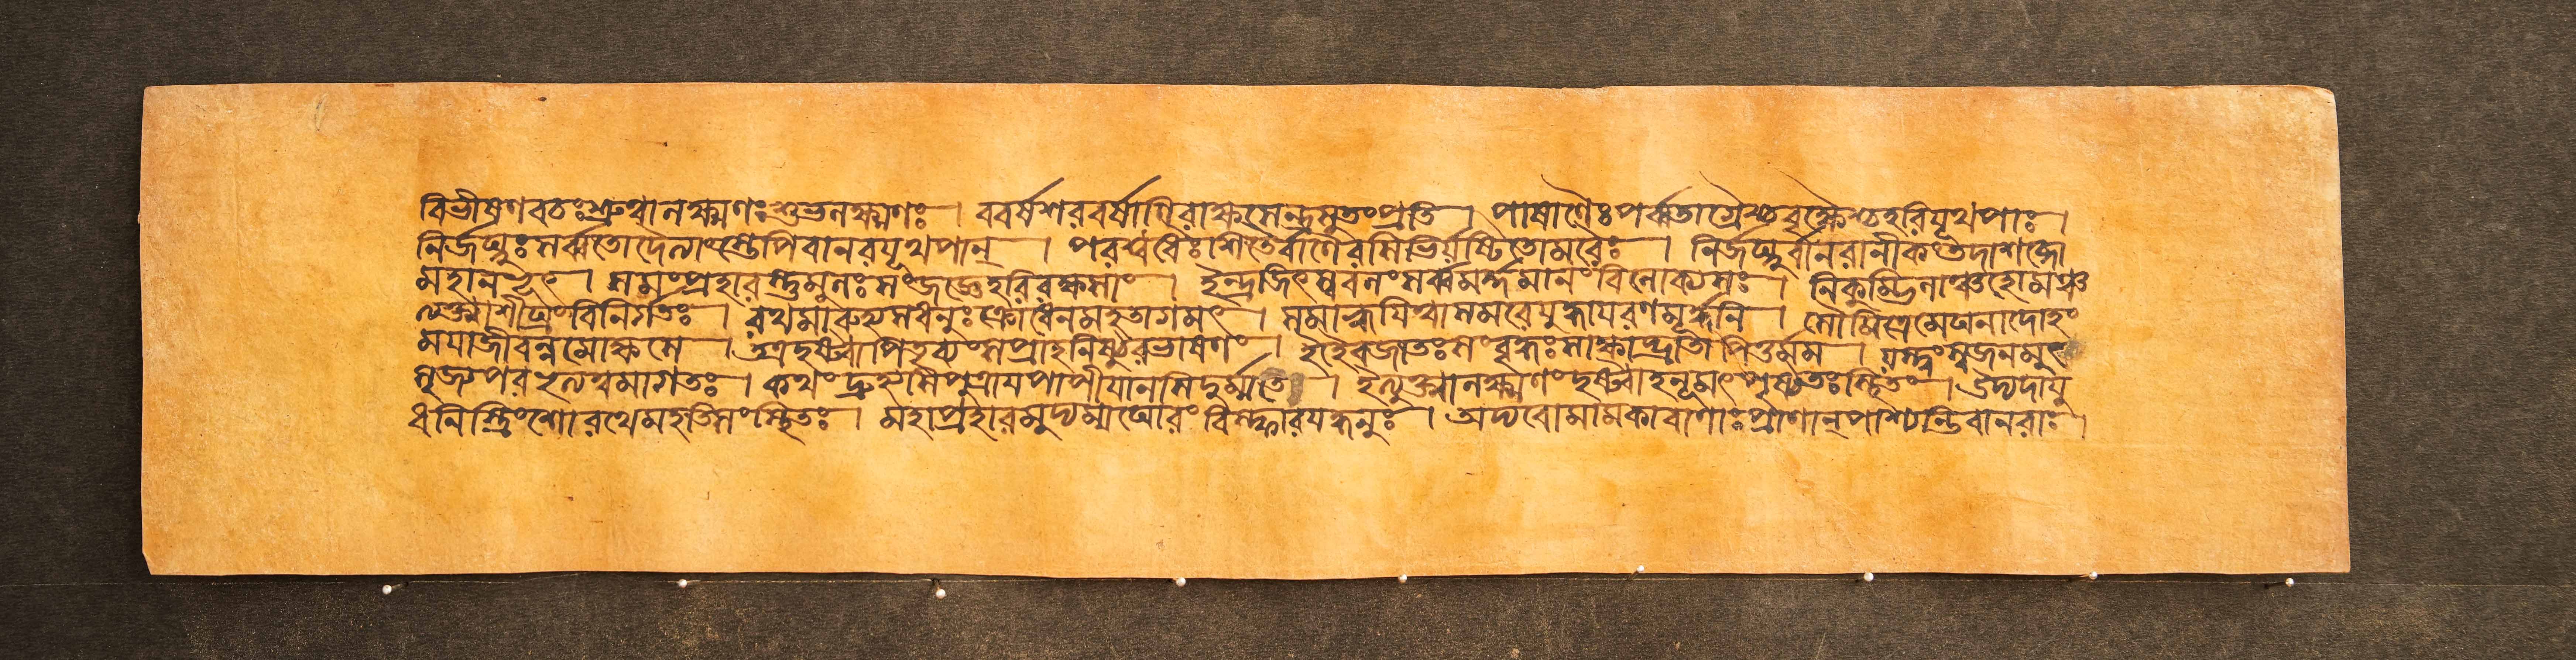 বিভীষণবচঃশ্রুত্বালক্ষ্মণঃশুভলক্ষণঃ । ববর্ষশরবর্ষাণিরাক্ষসেন্দ্রসুতংপ্রতি । পাষাণৈঃপর্ব্বতাগ্রৈশ্চবৃক্ষৈশ্চহরিযূথপাঃ ।
নির্জঘ্নুঃসর্ব্বতোদৈত্যাংস্তেপিবানরযূথপান্ । পরশ্বধৈঃশিতৈর্বাণৈরসিভির্যষ্টিতোমরৈঃ । নির্জঘ্নুর্বানরানীকংতদাশব্দো
মহানভূৎ । সসংপ্রহারস্তুমুলঃসংজজ্ঞেহরিরক্ষসাং । ইন্দ্রজিৎস্ববলংসর্ব্বমর্দ্যমানংবিলোক্যসঃ । নিকুম্ভিলাঞ্চহোমঞ্চ
ত্যক্ত্বাশীঘ্রংবিনির্গতঃ । রথমারুহ্যসধনুঃক্রোধেনমহতাগমৎ । সমাহ্বযিত্বাসসমরেযুদ্ধাযরণমূর্দ্ধনি । সৌমিত্রেমেঘনাদোহং
মযাজীবন্নমোক্ষসে । তত্রদৃষ্ট্বাপিতৃব্যংসপ্রাহনিষ্ঠুরভাষণং । ইহৈবজাতঃসংবৃদ্ধঃসাক্ষাদ্ভ্রাতাপিতুর্মম । যস্ত্বংস্বজনমুৎ
সৃজ্যপরভৃত্যত্বমাগতঃ । কথংদ্রুহ্যসিপুত্রাযপাপীযানসিদুর্ম্মতে । ইত্যুক্ত্বালক্ষ্মণংদৃষ্ট্বাহনূমৎপৃষ্ঠতঃস্থিতং । উদ্যদাযু
ধনিস্ত্রিংশোরথেমহতিসংস্থিতঃ । মহাপ্রহারমুদ্যম্যঘোরংবিস্ফারযন্ধনুঃ । অদ্যবোমামকাবাণাঃপ্রাণান্পাস্যন্তিবানরাঃ ।